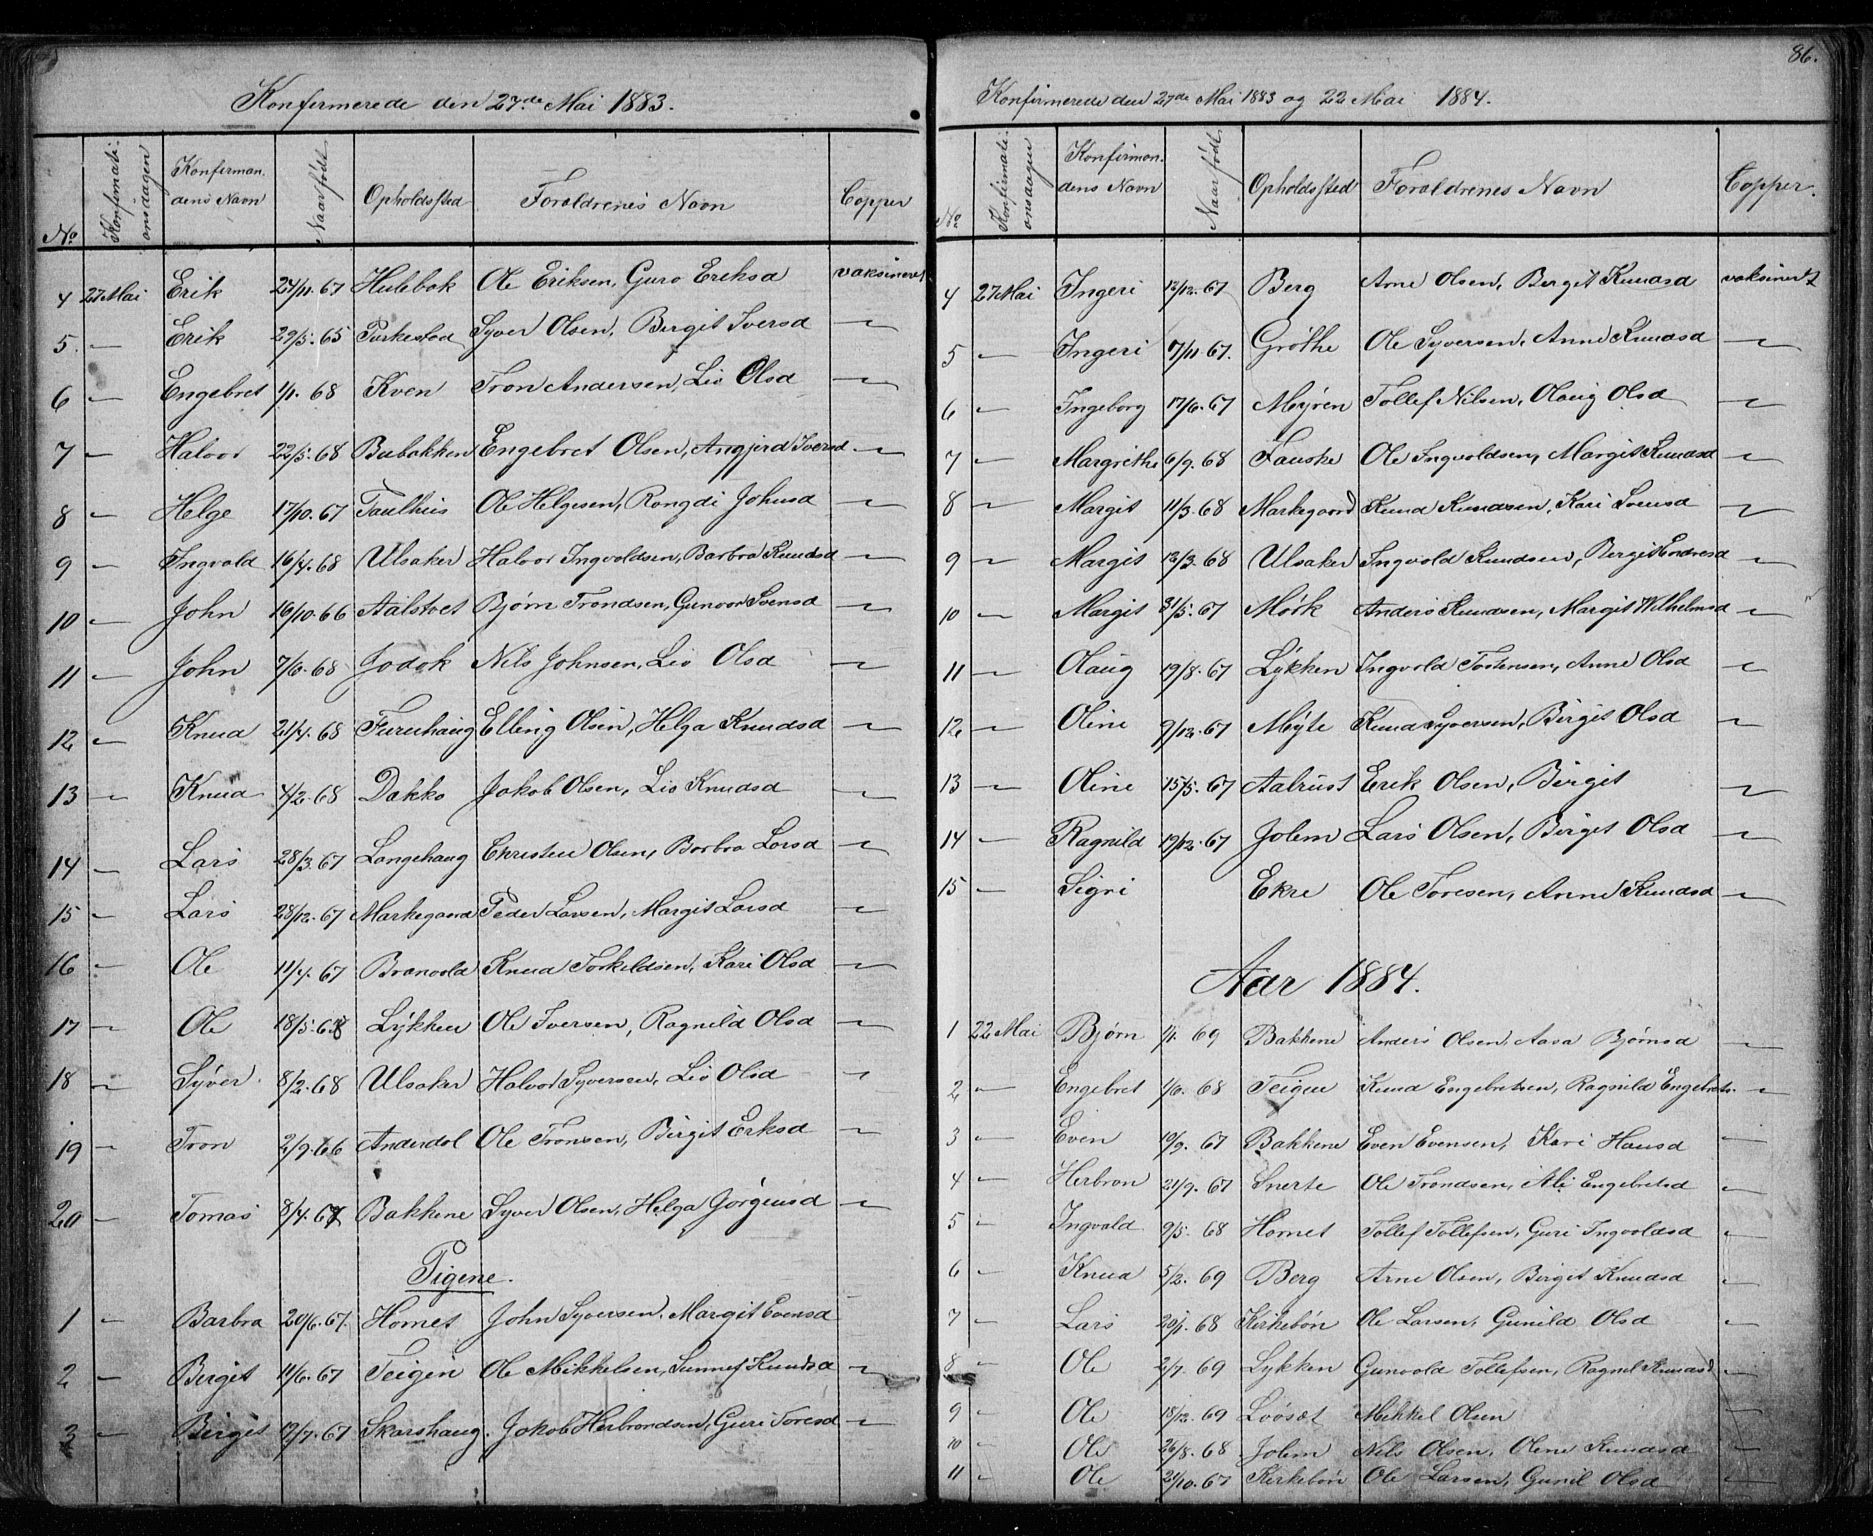 Konfirmerede den 27de Mai 1883.
No Konfirmationsdagen Konfirmandens Navn Naar født Opholdssted Forældrenes Navn Copper
4 27 Mai Erik 24/11 67 Hulebak Ole Eriksen, Guro Eriksd vaksineret
5 — Erik 29/5 65 Ole Syver Olsen, Birgit Iversd —
6 — Engebret 1/1 68 Kven Tron Andersen, Liv Olsd —
7 — Halvor 22/5 68 Bubakken Engebret Olsen, Angjerd Iversd —
8 — Helge 17/10 67 Taulhus Ole Helgesen, Rangdi Johnsd —
9 — Ingvald 16/4 68 Ulsaker Halvor Ingvaldsen, Barbra Knudsd —
10 — John 16/10 66 Aalstvet Bjørn Trondsen, Gunvor Svensd —
11 — John 7/6 68 Jodok Nils Johnsen, Liv Olsd —
12 — Knud 21/4 68 Furuhaug Elling Olsen, Helga Knudsd —
13 — Knud 4/2 68 Dakko Jakob Olsen, Liv Knudsd —
14 — Lars 28/3 67 Langehaug Christen Olsen, Barbra Larsd —
15 — Lars 28/12 67 Markegaard Peder Larsen, Margit Larsd —
16 — Ole 11/4 67 Branvold Knud Torkildsen, Kari Olsd —
17 — Ole 18/5 68 Lykken Ole Iversen, Ragnild Olsd —
18 — Syver 8/2 68 Ulsaker Halvor Syversen, Liv Olsd —
19 — Tron 2/9 66 Anderdal Ole Tronsen, Birgit Eriksd —
20 — Tomas 8/4 67 Bakkene Syver Olsen, Helga Jørgensd —
Pigene.
1 — Barbra 20/6 67 Homet John Syversen, Margit Evensd —
2 — Birgit 11/6 67 Teigen Ole Mikkelsen, Sunnef Knudsd —
3 — Birgit 12/7 67 Skarshaug Jakob Herbrandsen, Guri Toresd —
86.
Konfirmerede den 27de Mai 1883 og 22 Mai 1884.
No Konfirmationsdagen Konfirmandens Navn Naar født Opholdssted Forældrenes Navn Copper.
4 27 Mai Ingeri 12/12 67 Berg Arne Olsen, Birgit Knudsd vaksinert
5 — Ingeri 7/11 67 Grøthe Ole Syversen, Anne Knudsd —
6 — Ingeborg 17/6 67 Myren Tollef Nilsen, Olaug Olsd —
7 — Margrethe 6/9 68 Fauske Ole Ingvaldsen, Margit Knudsd —
8 — Margit 11/3 68 Markegaard Knud Knudsen, Kari Svensd —
9 — Margit 12/3 68 Ulsaker Ingvald Knudsen, Birgit Endresd —
10 — Margit 31/5 67 Mørk Anders Knudsen, Margit Wilhelmsd —
11 — Olaug 19/8 67 Lykken Ingvald Tostensen, Anne Olsd —
12 — Oline 9/12 67 Myte Knud Syversen, Birgit Olsd —
13 — Oline 15/5 67 Aalrust Erik Olsen, Birgit —
14 — Ragnild 19/12 67 Jolem Lars Olsen, Birgit Olsd —
15 — Sigri Ekre Ole Toresen, Anne Knudsd —
Aar 1884.
1 22 Mai Bjørn 1/1 69 Bakkene Anders Olsen, Aasa Bjørnsd —
2 — Engebret 1/6 68 Teigen Knud Engebretsen, Ragnild Engebrets. —
3 — Even 19/9 67 Bakkene Even Evensen, Kari Hansd —
4 — Herbran 21/9 67 Snerte Ole Trondsen, Ali Engebretsd —
5 — Ingvald 9/5 68 Homet Tollef Tollefsen, Guri Ingvaldsd —
6 — Knud 5/2 69 Berg Arne Olsen, Birgit Knudsd —
7 — Lars 20/1 68 Kirkebøn Ole Larsen, Gunild Olsd —
8 — Ole 2/7 69 Lykken Gunvald Tollefsen, Ragnil Knudsd —
9 — Ole 18/12 69 Løvset Mikkel Olsen —
10 — Ole 26/8 68 Jolem Nils Olsen, Olene Knudsd —
11 — Ole 21/10 67 Kirkebøn Ole Larsen, Gunil Olsd —